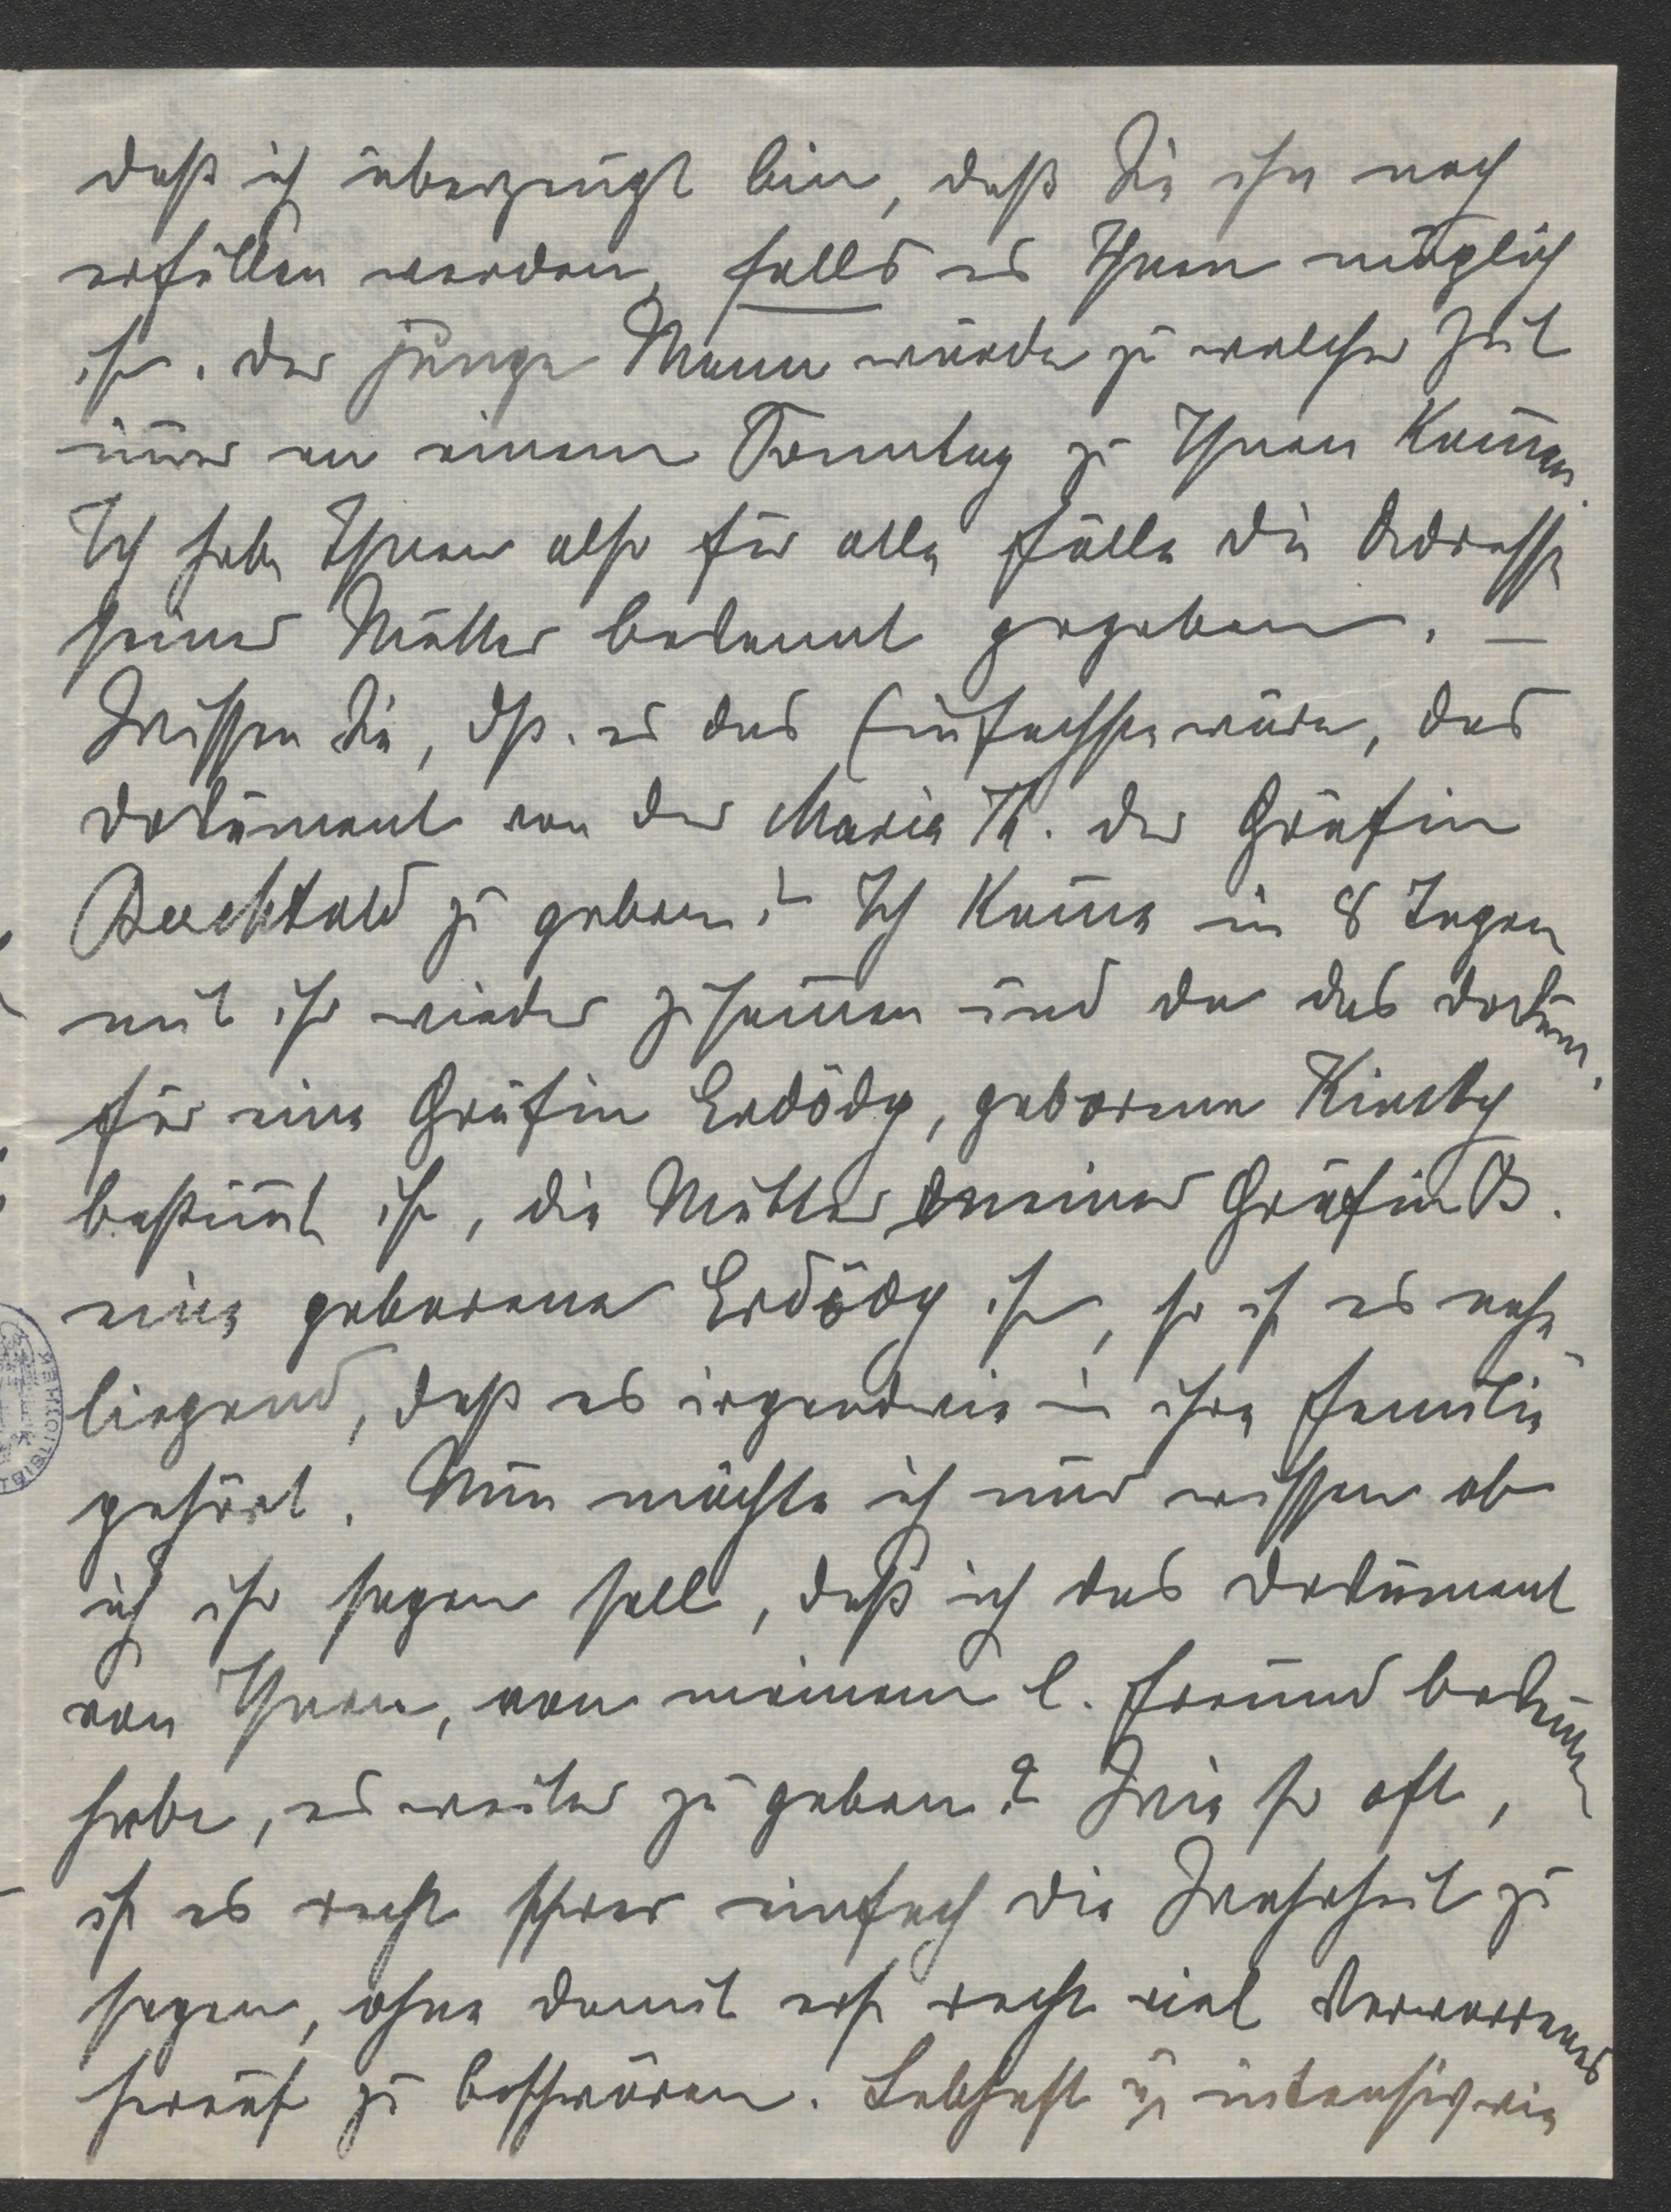 daß ich überzeugt bin, daß Sie ihn noch
erfüllen werden, falls es Ihnen möglich
ist. Der junge Mann würde zu welcher Zeit
im̄er an einem Sonntag zu Ihnen kom̄en.
Ich habe Ihnen also für alle Fälle die Adresse
seiner Mutter bekannt gegeben. —
Wissen Sie, dß. es das Einfachste wäre, das
Dokument von der Maria Th. der Gräfin
zu geben? Ich kom̄e in 8 Tagen
mit ihr wieder zusam̄en und da das Dokum.
für eine Gräfin Erdödy, geborene Kinsky
bestim̄t ist, die Mutter meiner Gräfin B.
eine geborene Erdödy ist, so ist es nahe
liegend, daß es irgendwie in ihre Familie
gehört. Nun möchte ich nur wissen ob
ich ihr sagen soll, daß ich das Dokument
von Ihnen, von meinem l. Freund bekom̄en
habe, es weiter zu geben? Wie so oft,
ist es recht schwer einfach die Wahrheit zu
sagen, ohne damit erst recht viel Verworrenes
herauf zu beschwören. Lebhaft u. intensiv wie